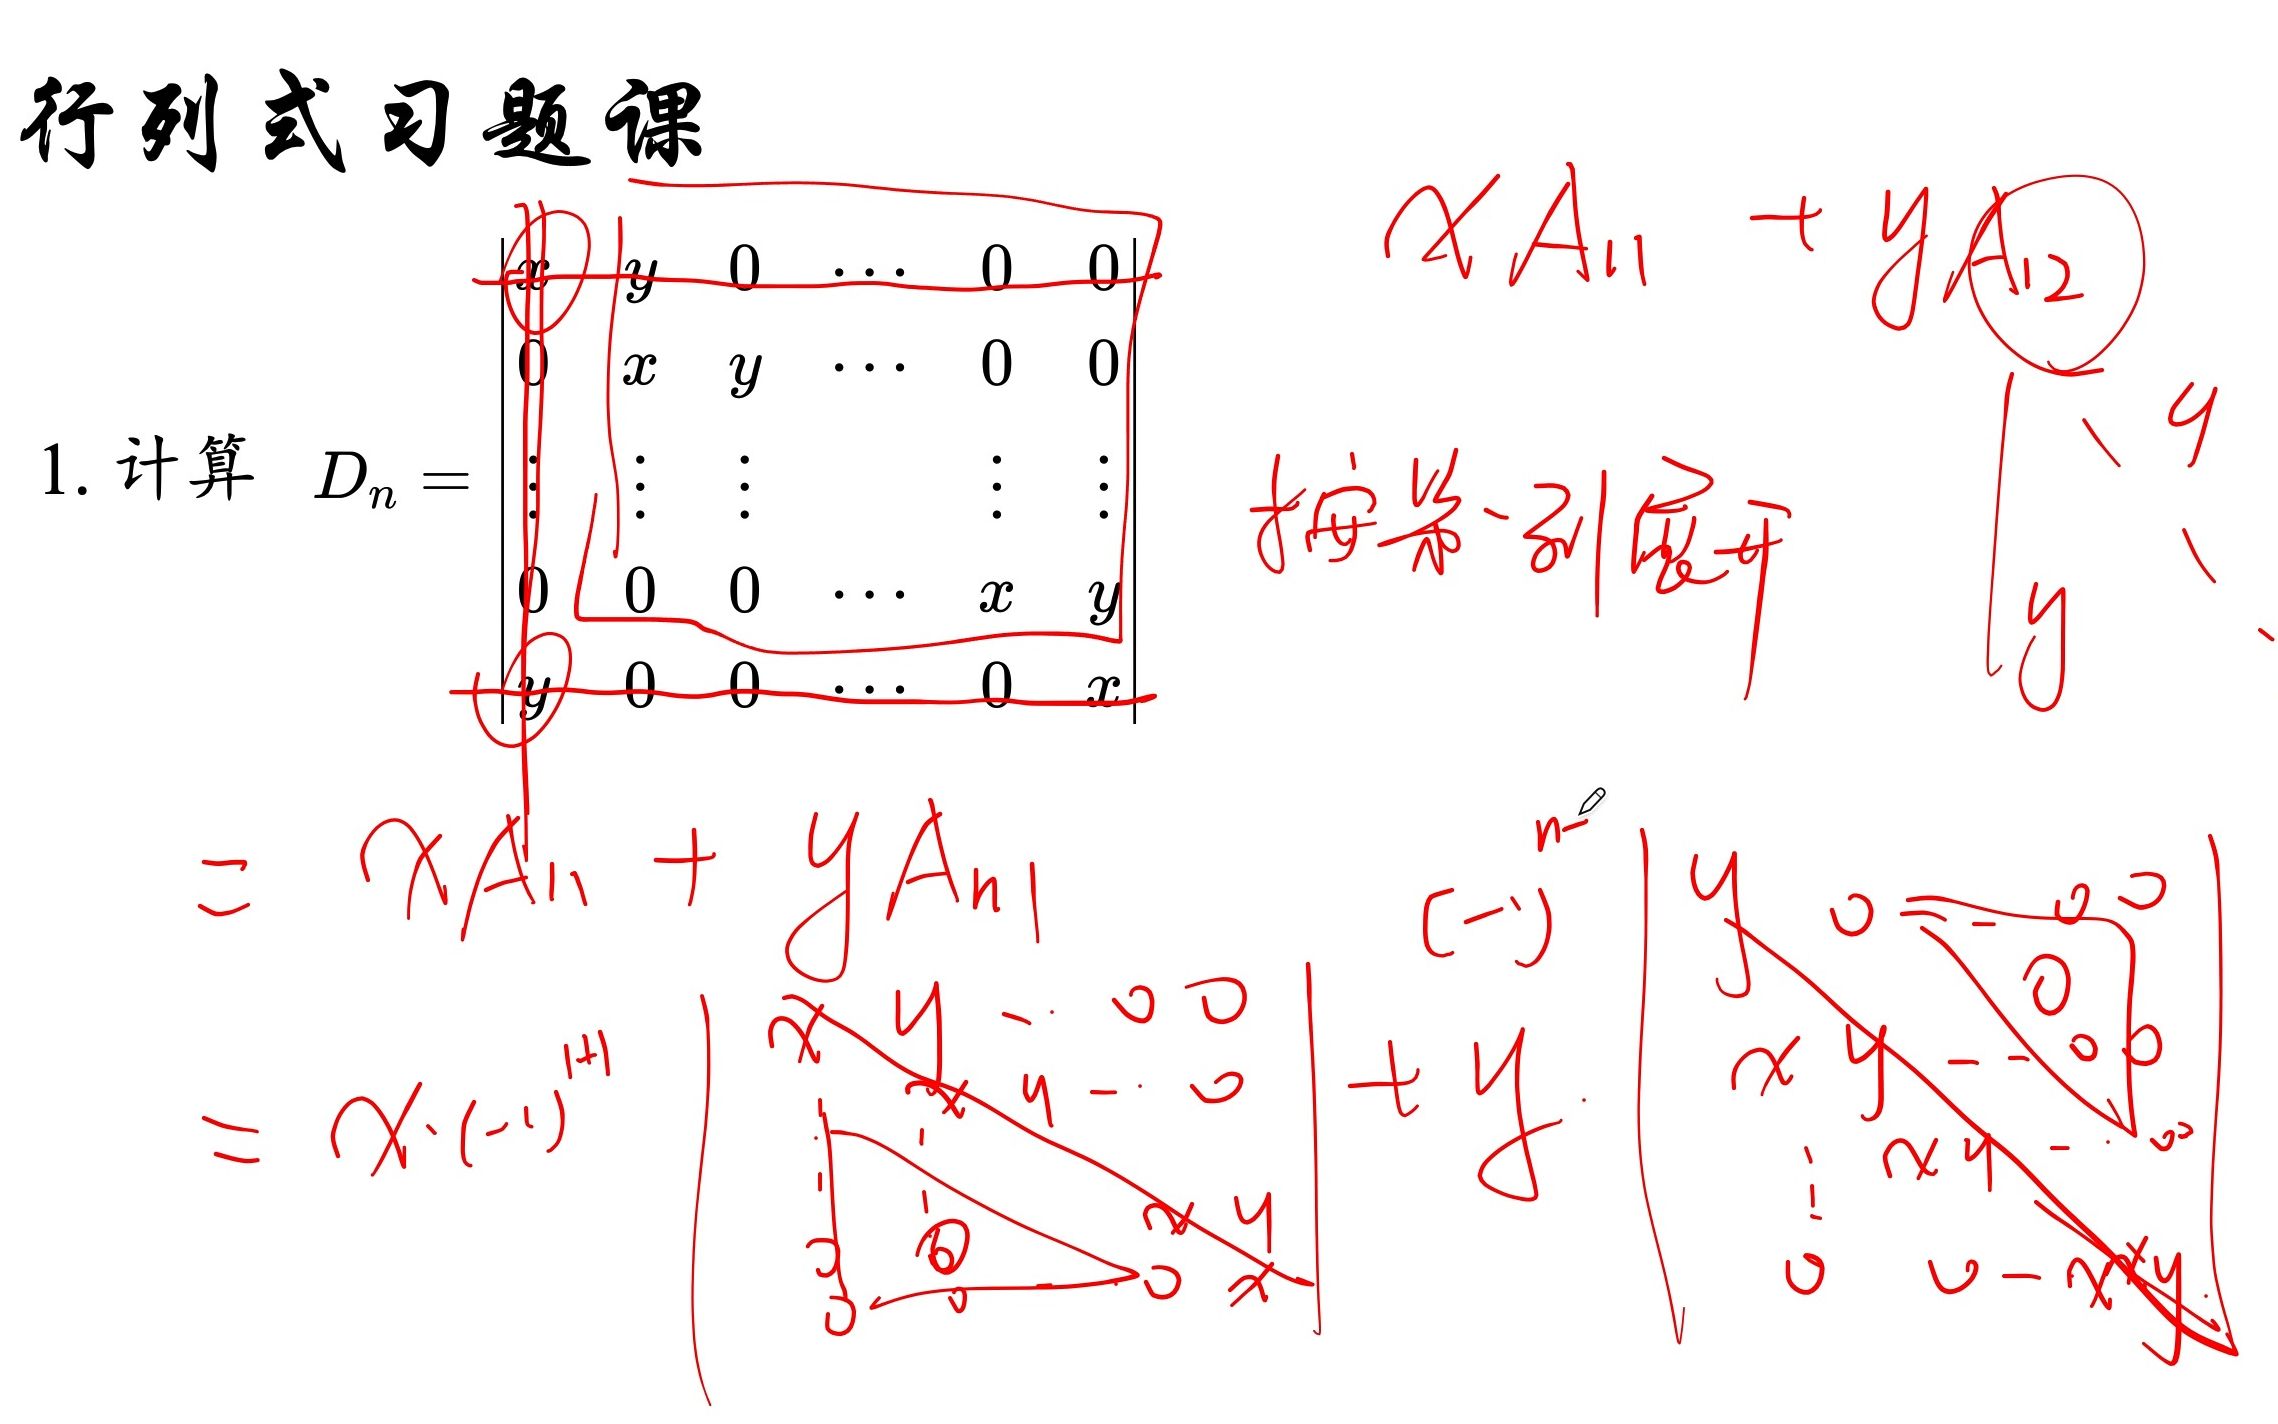 行列式习题课
x y 0 ⋯ 0 0
0 x y ⋯ 0 0
1. 计算 Dₙ = ⋮ ⋮ ⋮ ⋮ ⋮
0 0 0 ⋯ x y
y 0 0 ⋯ 0 x
xA₁₁ + yA₁₂
按第一列展开
y
y
= xA₁₁ + yAₙ₁
= x·(-1)¹⁺¹
x y - · 0 0
x y - · 0
0 x y
0 0 - · 0 x
+ y·
(-1)ⁿ⁻
y 0 - 0 0
0
x y - - 0 0
x y - · 0
0 0 - x y